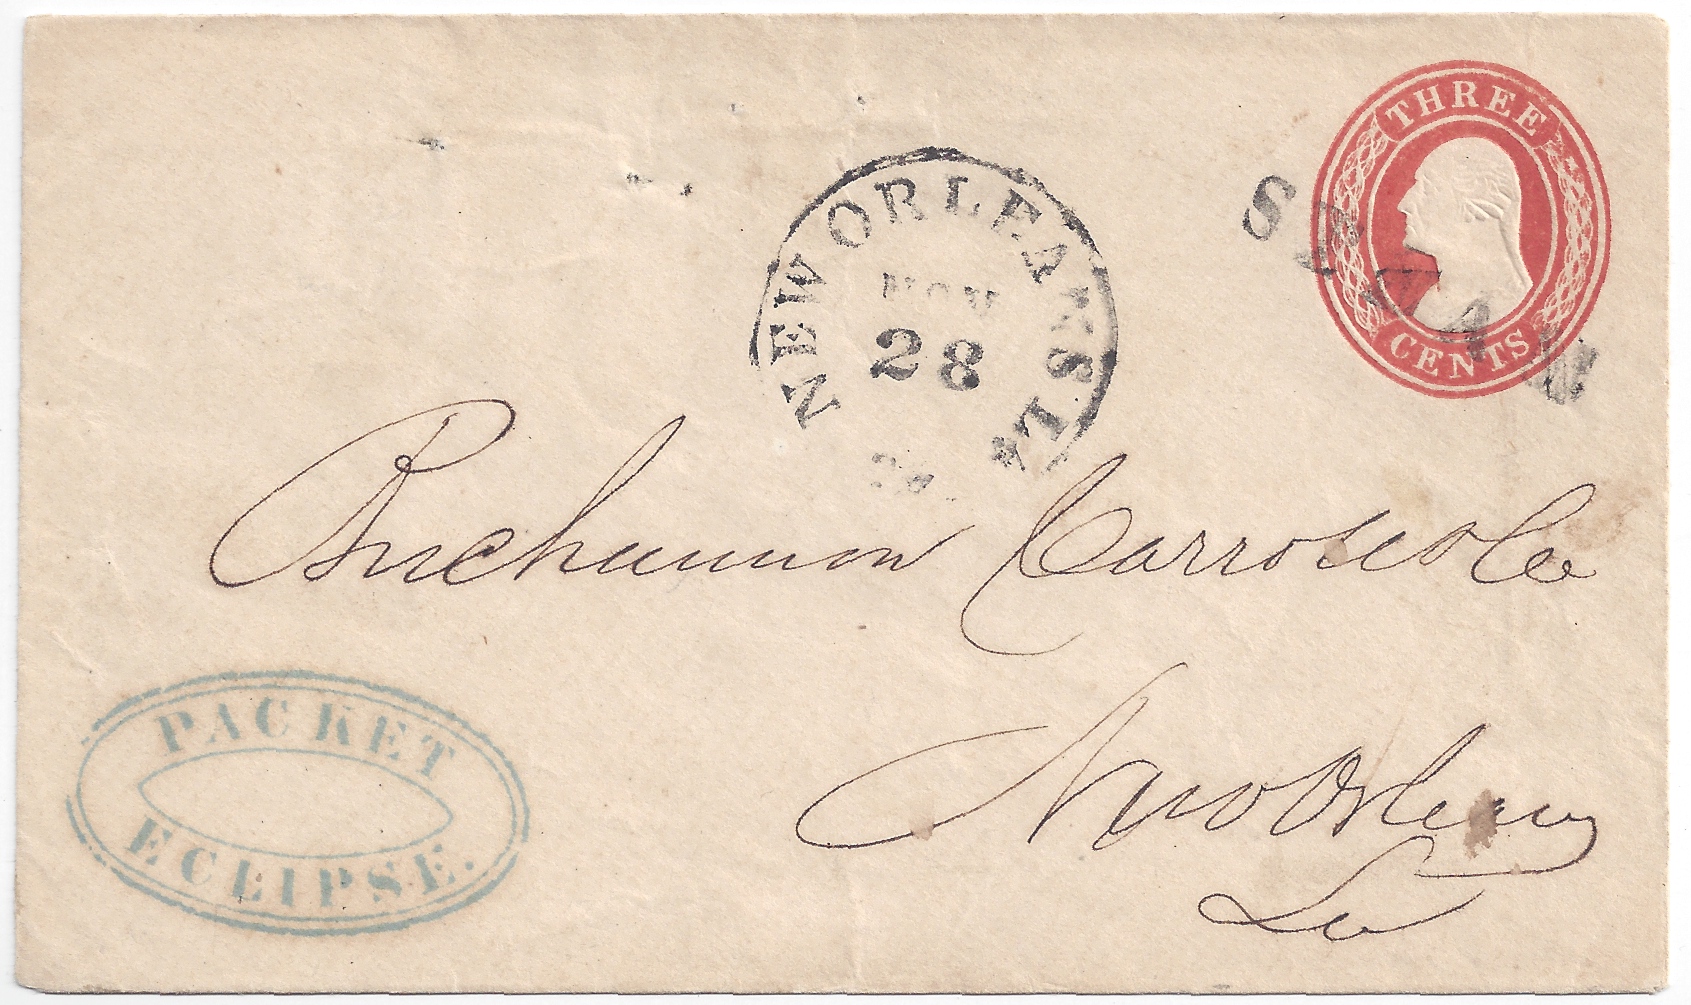 THREE
CENTS
NEW ORLEANS LA
NOV
28
Buchannon Carroll & Co
New Orleans
La
PACKET
ECLIPSE.